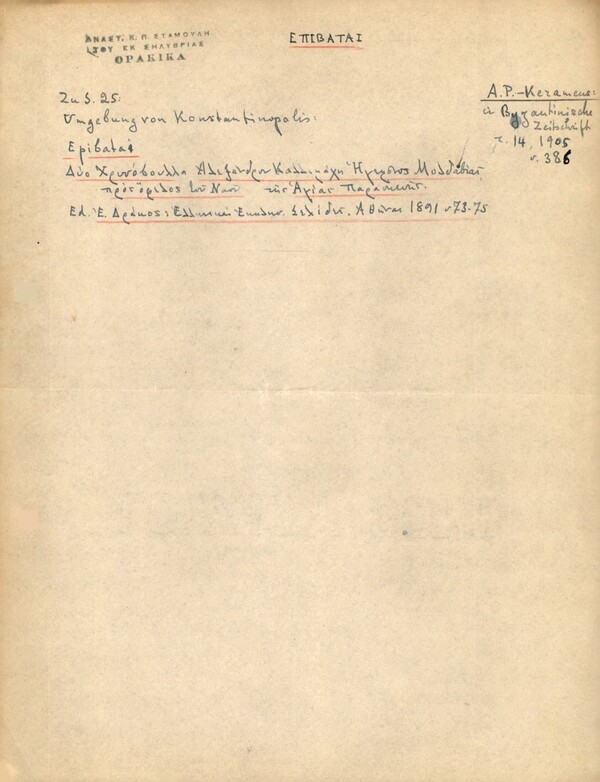 ΑΝΑΣΤ. Κ. Π. ΣΤΑΜΟΥΛΗ
ΤΟΥ ΕΚ ΣΗΛΥΒΡΙΑΣ
ΘΡΑΚΙΚΑ
ΕΠΙΒΑΤΑΙ
A.P.-Kerameus:
Byzantinische
Zeitschrift
τ. 14, 1905
σ. 386
Zu S. 25:
Umgebung von Konstantinopolis:
Epibatai
Δύο Χρυσόβουλλα Αλεξάνδρου Καλλιμάχη Ηγεμόνος Μολδαβίας,
προς όφελος του Ναού της Αγίας Παρασκευής.
Ed. Ε. Δράκος: Ελληνικαί Εκκλησ. Σελίδες. Αθήναι 1891 σ 73-75